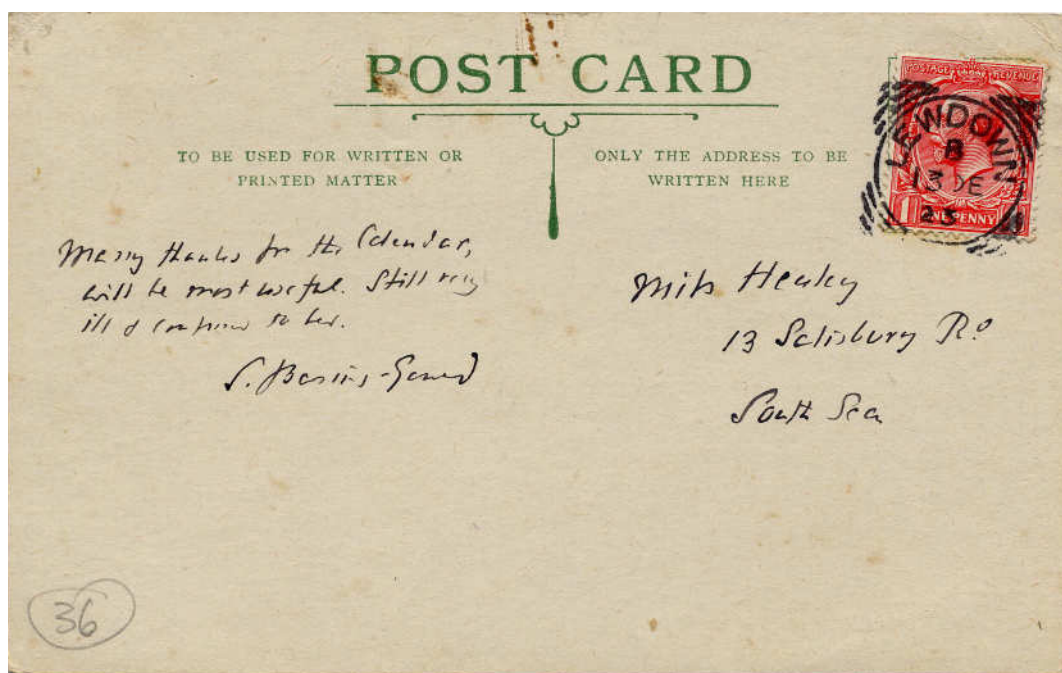 POST CARD
TO BE USED FOR WRITTEN OR
PRINTED MATTER
ONLY THE ADDRESS TO BE
WRITTEN HERE
POSTAGE REVENUE
LEWDOWN
B
13 DE
23
1 ONE PENNY
Many thanks for the Calendar,
will be most useful. Still very
ill & confined to bed.
S. Baring-Gould
Miss Healey
13 Salisbury Rd
South Sea
36